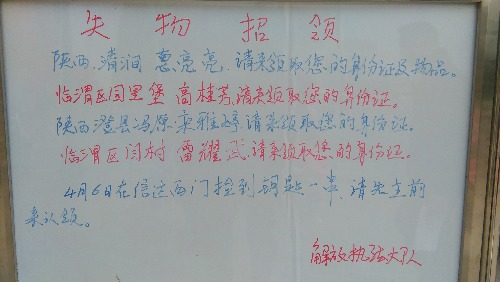 失物招领
陕西、清涧 惠亮亮、请来领取您的身份证及物品。
临渭区固里堡 高桂芳,请来领取您的身份证。
陕西澄县冯原 雅婷请来领取您的身份证。
临渭区闫村 雷耀武,请来领取您的身份证。
4月6日在信达西门捡到钥匙一串,请失主前
来认领。
解放执法大队